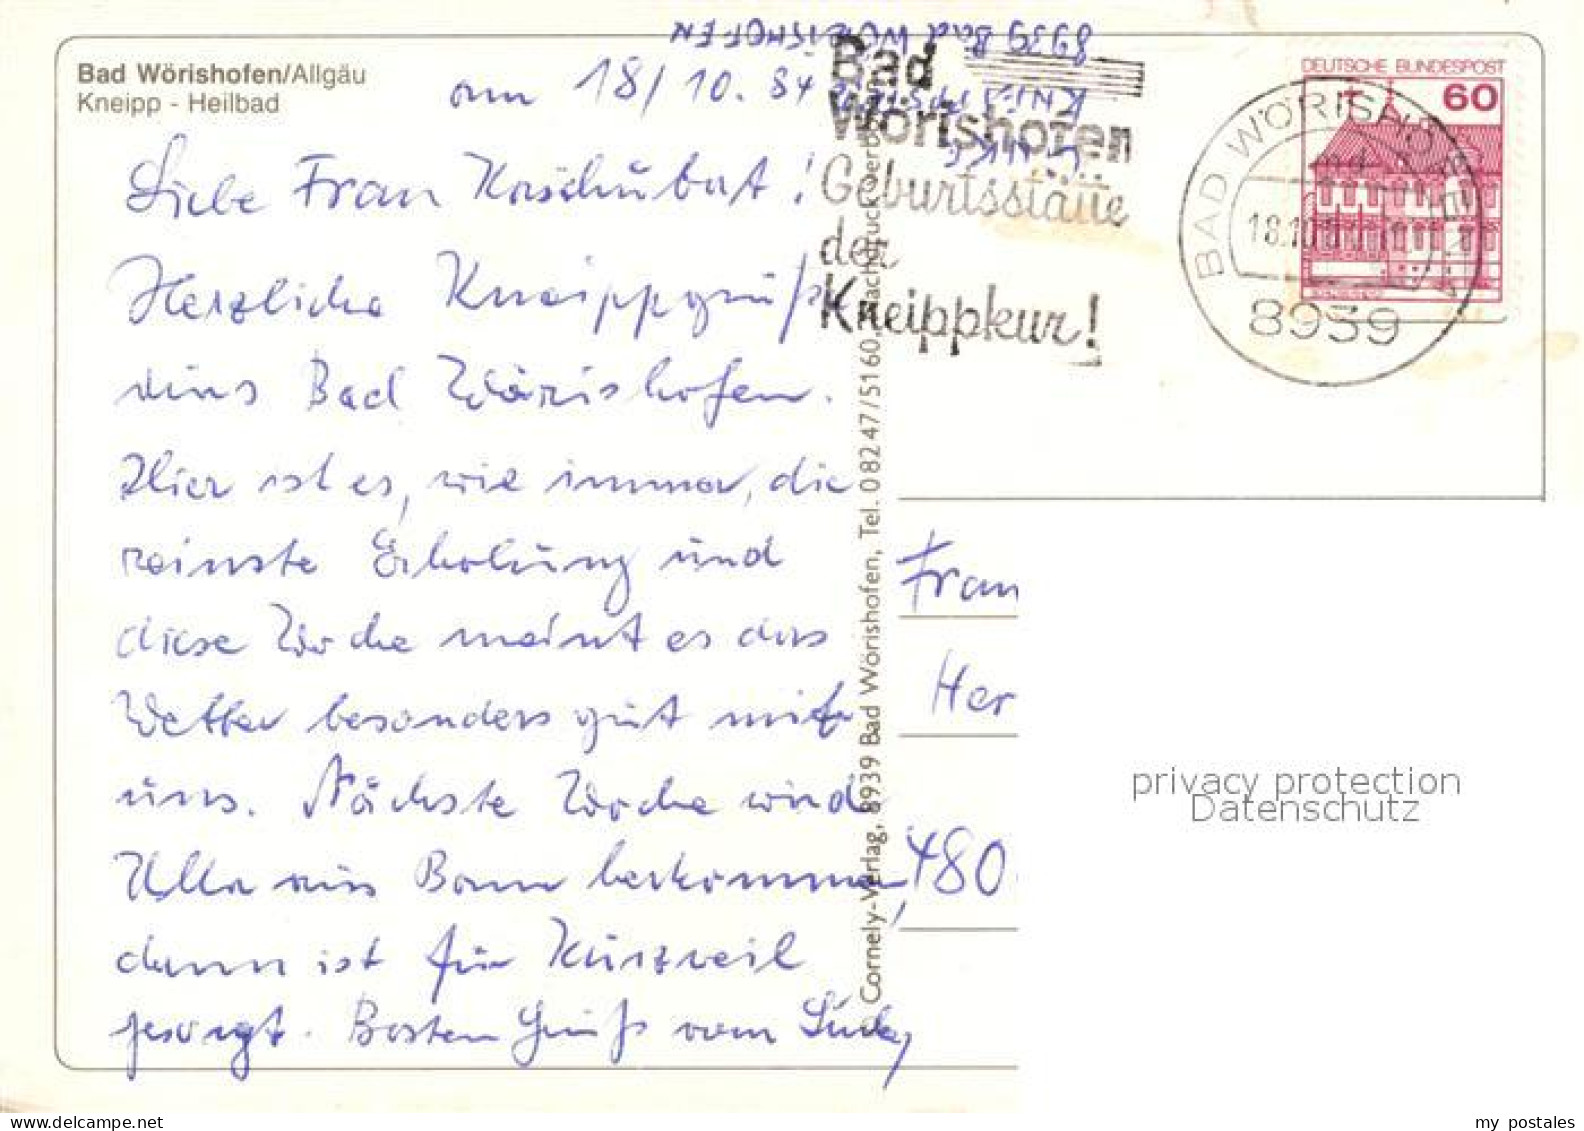 Bad Wörishofen/Allgäu
Kneipp - Heilbad
am 18/10. 84
Liebe Frau Kaschubat!
Herzliche Kneippgrüße
aus Bad Wörishofen.
Hier ist es, wie immer, die
reinste Erholung und
diese Woche meint es das
Wetter besonders gut mit
uns. Nächste Woche wird
Ulla aus Bonn herkommen,
dann ist für Kurzweil
gesorgt. Besten Gruß vom
© Cornely-Verlag, 8939 Bad Wörishofen, Tel. 08247/5160, Nachdruck verboten
8939 Bad WÖRISHOFEN
Bad
Wörishofen
Geburtsstätte
der
Kneippkur!
DEUTSCHE BUNDESPOST
60
BAD WÖRISHOFEN
18.10.
8939
Frau
Her
480
privacy protection
Datenschutz
my postales